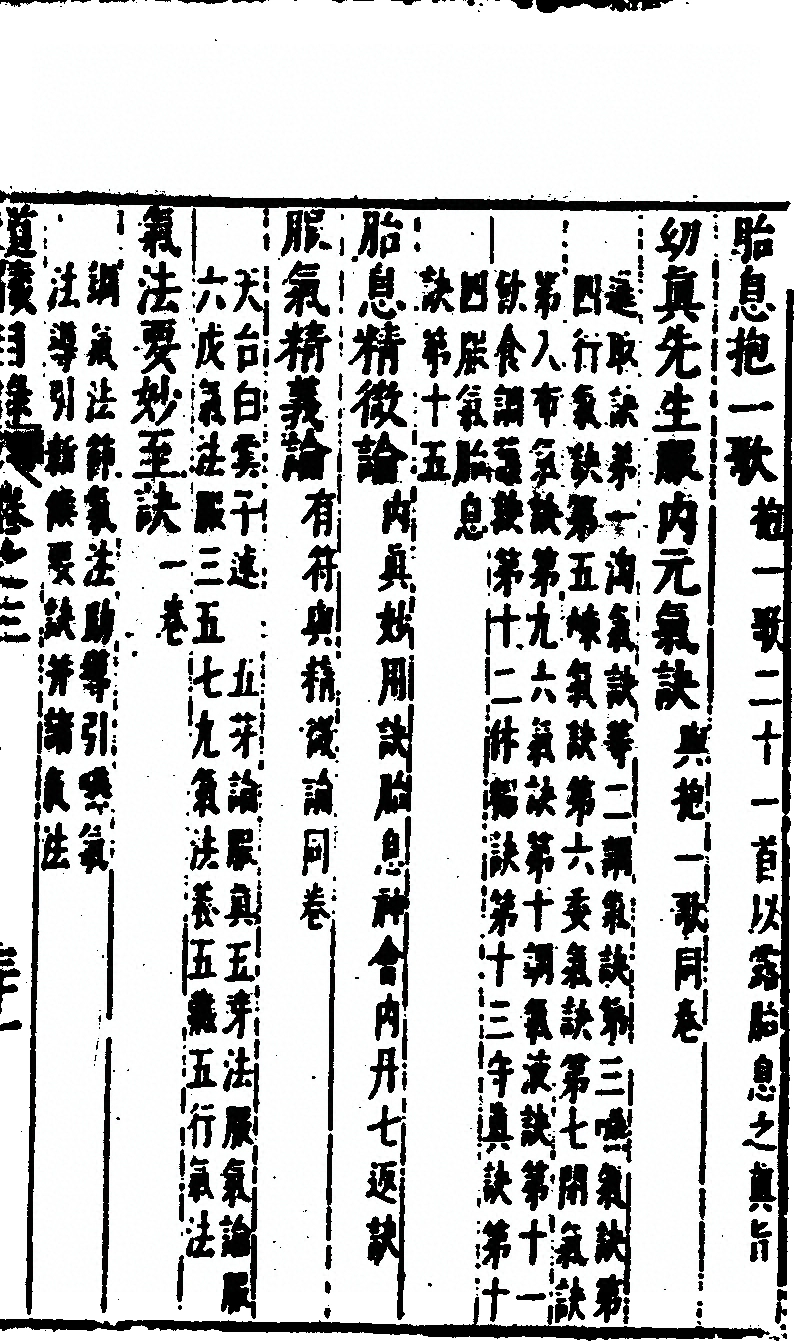 胎息抱一歌 抱一歌二十一首以露胎息之眞旨
幼眞先生服内元氣訣 與抱一歌同卷
進取訣第一淘氣訣第二調氣訣第三嚥氣訣第
四行氣訣第五煉氣訣第六委氣訣第七閉氣訣
第八布氣訣第九六氣訣第十調氣液訣第十一
飲食調護訣第十二休糧訣第十三守眞訣第十
四服氣胎息
訣第十五
胎息精微論 内眞妙用訣胎息神會内丹七返訣
服氣精義論 有符與精微論同卷
天台白雲子述 五芽論服眞五芽法服氣論服
六戊氣法服三五七九氣法養五臟五行氣法
氣法要妙至訣 一卷
調氣法節氣法助導引嚥氣
法導引新候要訣并諸氣法
道藏目錄 卷之三 三十一